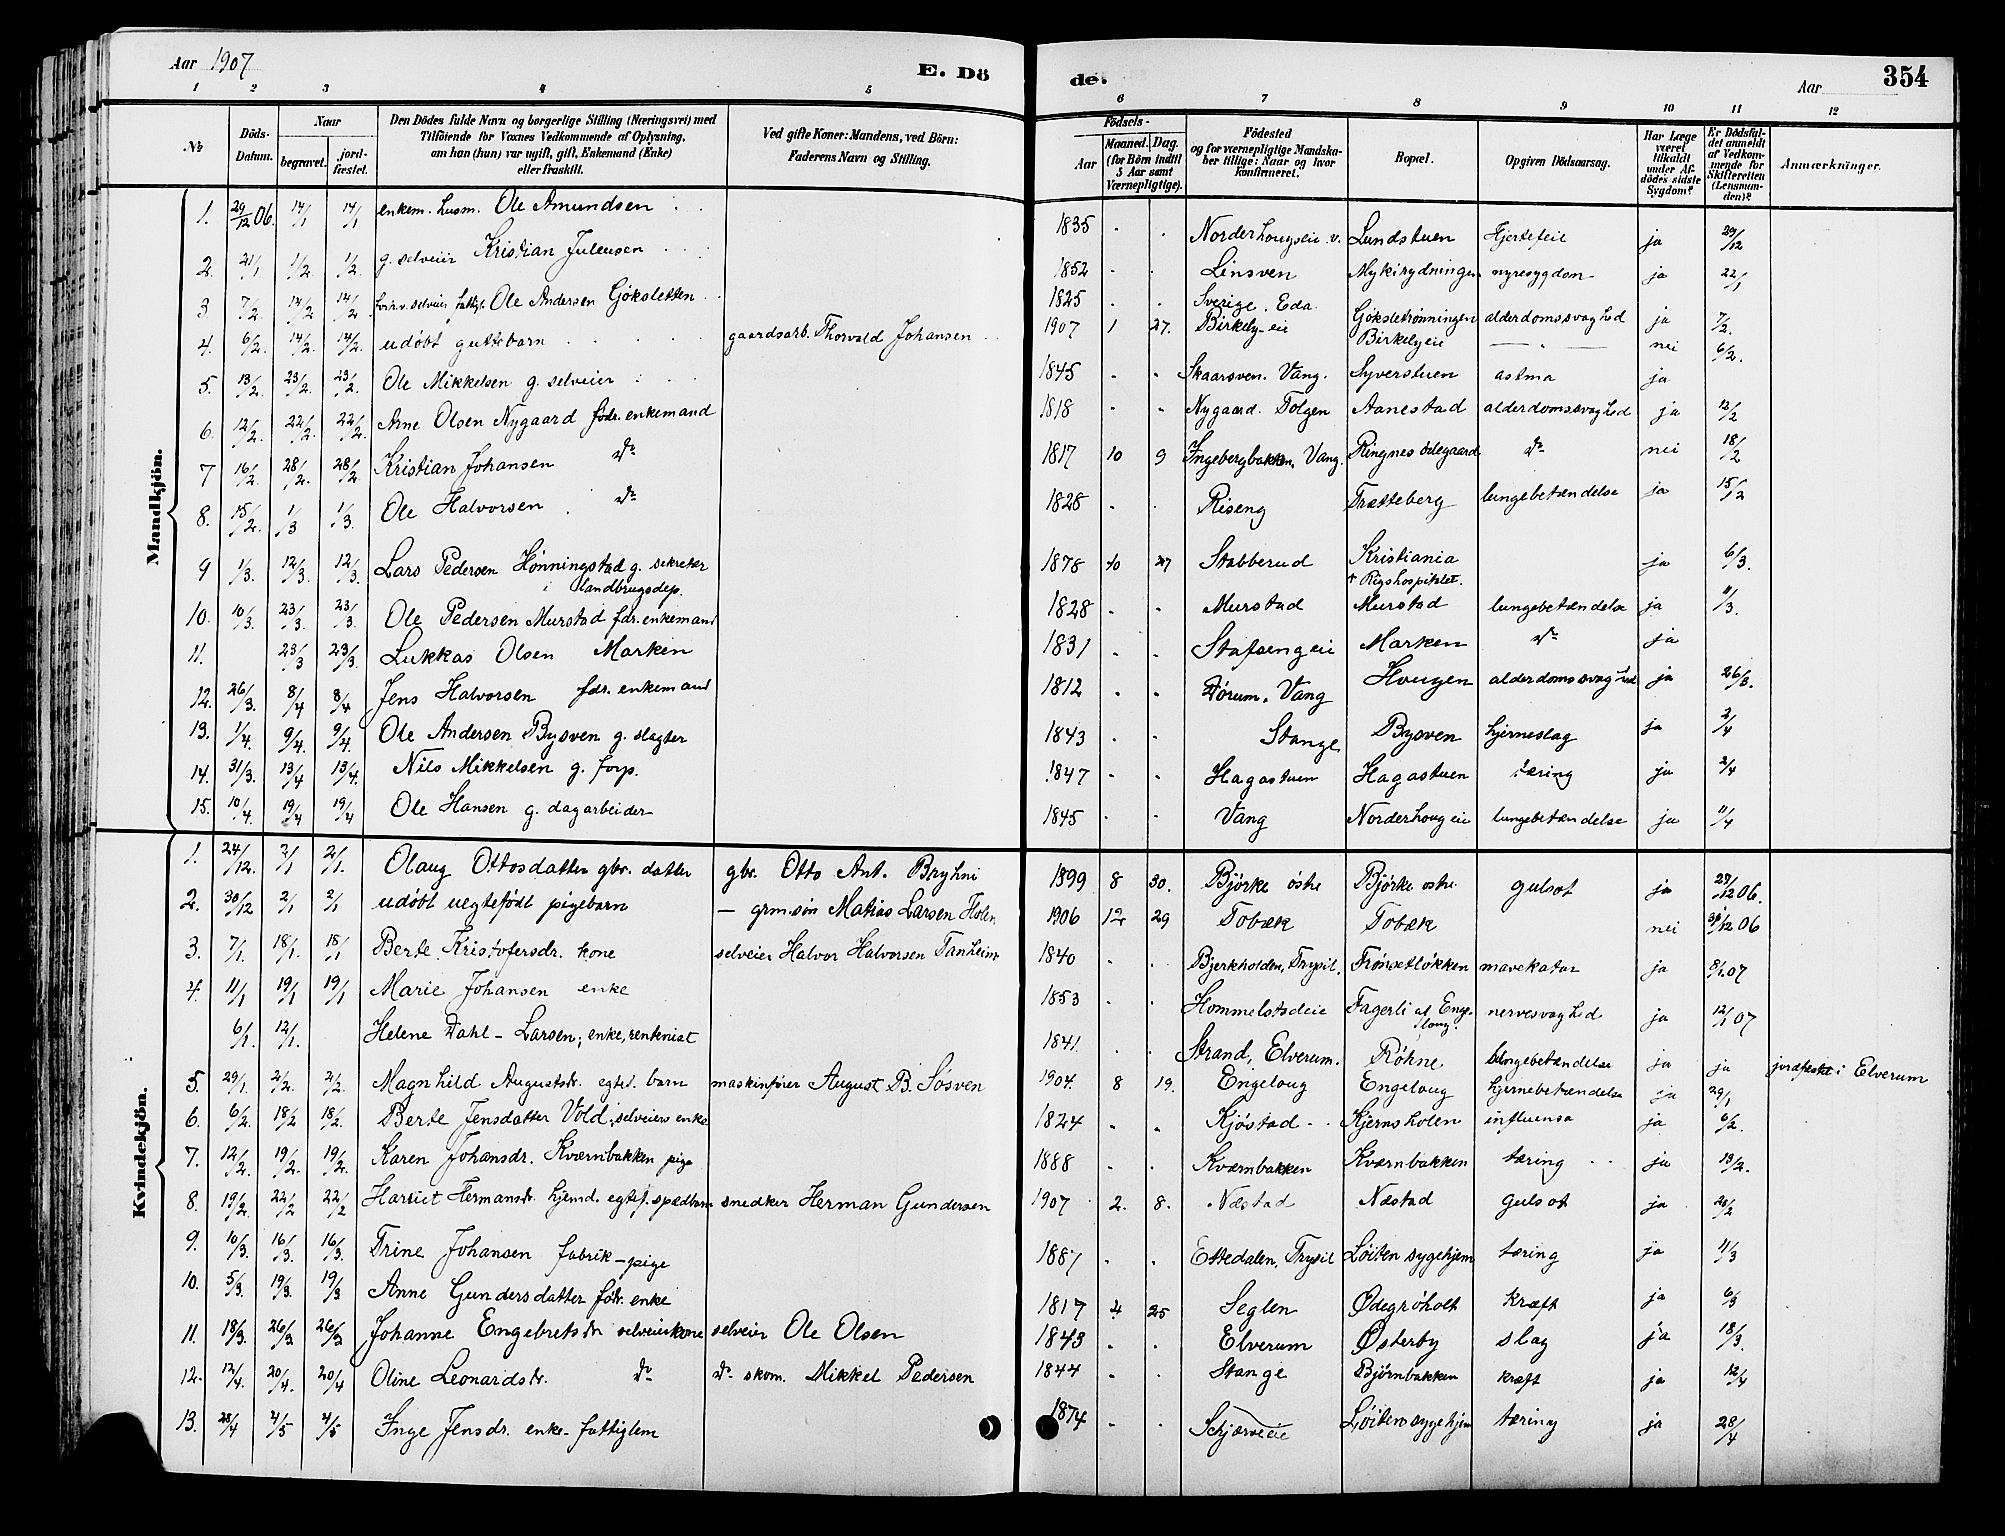 Aar 1907
E. Dö
de.
Aar
354
1 2 3 4 5 6 7 8 9 10 11 12
No.
Döds-Datum.
Naar
begravet.
jord-fæstet.
Den Dödes fulde Navn og borgerlige Stilling (Næringsvei) med
Tilföiende for Voxnes Vedkommende af Oplysning,
om han (hun) var ugift, gift, Enkemand (Enke)
eller fraskilt.
Ved gifte Koner: Mandens, ved Börn:
Faderens Navn og Stilling.
Födsels-
Aar
Maaned. Dag.
(for Börn indtil
5 Aar samt
Værnepligtige).
Födested
og for værnepligtige Mandskaber tillige: Naar og hvor
konfirmeret.
Bopæl.
Opgiven Dödsaarsag.
Har Læge
været
tilkaldt
under Afdödes sidste
Sygdom?
Er Dödsfaldet anmeldt
af Vedkommende for
Skifteretten
(Lensmanden)?
Anmærkninger.
Mandkjön.
1. 29/12 06. 14/1 14/1 enkem. husm. Ole Amundsen 1835 Norderhougseie v. Lundstuen Hjertefeil ja 29/12
2. 21/1 1/2. 1/2. g. selveier Kristian Juleusen 1852 Linsven Mykirydningen nyresygdom ja 22/1
3 7/2. 14/2 14/2 selveier fattigl. Ole Andersen Göksletten 1825 Sverige. Eda Göksletrönningen alderdomssvaghed ja 7/2.
4. 6/2. 14/2. 14/2. udöbt guttebarn gaardsarb. Thorvald Johansen 1907 1 27. Birkely-eie Birkelyeie — " — nei 6/2.
5. 13/2. 23/2. 23/2. Ole Mikkelsen g. selveier 1845 Skaarsven. Vang. Syverstuen astma ja
6. 12/2. 22/2. 22/2. Arne Olsen Nygaard fdr. enkemand 1818 Nygaard. Tolgen Aanestad alderdomssvaghed ja 12/2
7 16/2. 28/2. 28/2 Kristian Johansen do 1817 10 9 Ingebergbakken, Vang. Ringnes ödegaard do nei 18/2
8. 15/2. 1/3 1/3. Ole Halvorsen do 1828 Riseng Trætteberg lungebetændelse ja 15/2
9 1/3. 12/3. 12/3. Lars Pedersen Hønningstad g. sekretær
i landbrugsdep. 1878 10 27 Stabberud Kristiania
† Rigshospitalet. ja 6/3.
10. 10/3. 23/3. 23/3. Ole Pedersen Murstad fdr. enkemand 1828 Murstad Murstad lungebetændelse ja 11/3.
11. 23/3 23/3. Lukkas Olsen Marken 1831 Stafsengeie Marken do ja
12. 26/3. 8/4 8/4 Jens Halvorsen fdr. enkemand 1812 Dørum. Vang Hougen alderdomssvaghed ja 26/3.
13. 1/4. 9/4. 9/4. Ole Andersen Bysven g. slagter 1843 Stange Bysven hjerneslag ja 2/4
14. 31/3. 13/4 13/4. Nils Mikkelsen g. forp. 1847 Hagastuen Hagastuen tæring ja 2/4
15. 10/4. 19/4 19/4 Ole Hansen g. dagarbeider 1845 Vang Norderhougeie lungebetændelse ja 11/4
Kvindekjön.
1. 24/12. 2/1 2/1. Olaug Ottosdatter gbr. datter gbr. Otto Ant. Bryhni 1899 8 30. Björke östre Björke ostre gulsot ja 27/12 06.
2. 30/12 2/1 2/1 udöbt uegtefödt pigebarn — grm.søn Matias Larsen Holen 1906 12 29 Tobæk Tobæk nei 31/12 06
3. 7/1. 18/1. 18/1 Berte Kristofersdr. kone selveier Halvor Halvorsen Tanheim 1840 Bjerkholden, Trysil. Frönsetløkken mavekatar ja 8/1 07
4. 11/1 19/1 19/1 Marie Johansen enke 1853 Hommelstadeie Fagerli af Engeloug. nervesvaghed ja 12/1 07
6/1. 12/1. Helene Dahl-Larsen, enke, rentenist 1841. Strand, Elverum. Røhne lungebetændelse ja ja jordfæstet i Elverum
5. 29/1. 2/2. 2/2. Magnhild Augustdr. egtef. barn maskinfører August B. Sösven 1904. 8 19. Engeloug Engeloug hjernebetændelse ja 29/1
6. 6/2. 18/2 18/2. Berte Jensdatter Vold, selveiers enke 1824 Kjöstad Kjernsholen influensa ja 6/2.
7. 12/2. 19/2. 19/2. Karen Johansdr. Kværnbakken pige 1888 Kværnbakken Kværnbakken tæring ja 13/2.
8. 19/2. 22/2 22/2 Harriet Hermansdr. hjemd. egtef. spædbarn snedker Herman Gundersen 1907 2. 8. Næstad Næstad gulsot ja 20/2
9. 10/3. 16/3. 16/3. Trine Johansen fabrik-pige 1887 Ettedalen, Trysil Løiten sygehjem tæring ja 11/3
10. 5/3. 19/3. 19/3 Anne Gundersdatter fdr. enke 1817 2 25 Seglen Ødegrøholt kræft ja 6/3
11. 18/3. 26/3 26/3 Johanne Engebretsdr selveierkone selveier Ole Olsen 1843 Elverum Østerby slag ja 18/3.
12. 12/4. 20/4. 20/4 Oline Leonardsdr. do do skom. Mikkel Pedersen 1844 Stange Björnbakken kræft ja 12/4
13. 28/4 4/5 4/5 Inge Jensdr. enke-fattiglem 1874 Schjærveie Løiten sygehjem tæring ja 28/4